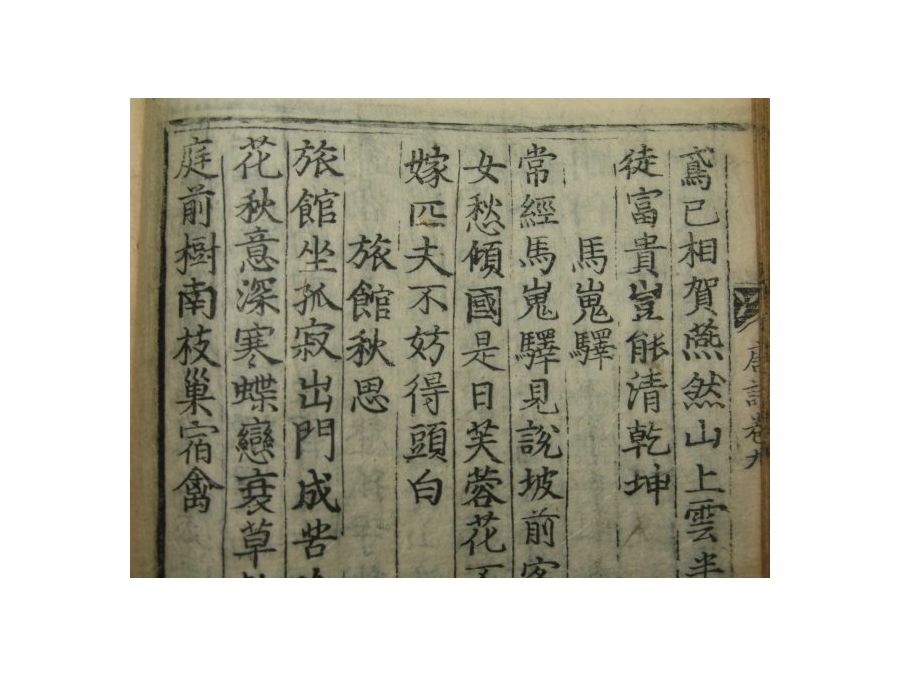 唐詩卷九
鳶已相賀燕然山上雲半
徒富貴豈能清乾坤
馬嵬驛
常經馬嵬驛見說坡前客
女愁傾國是日芙蓉花不
嫁匹夫不妨得頭白
旅館秋思
旅館坐孤寂出門成苦
花秋意深寒蝶戀衰草
庭前樹南枝巢宿禽